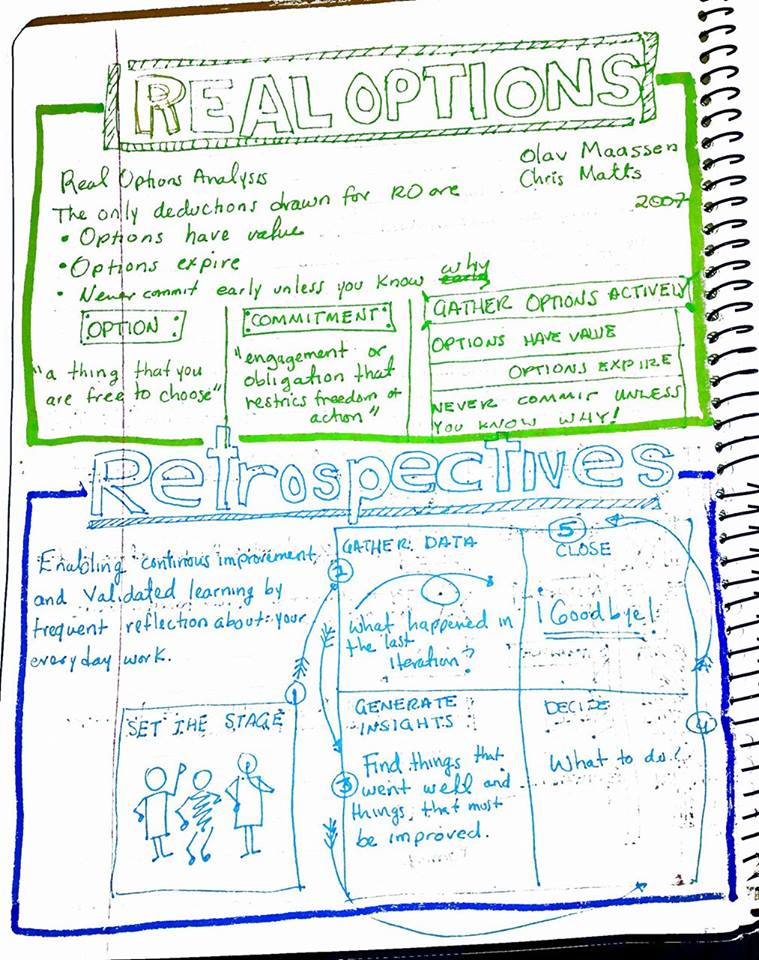 REAL OPTIONS
Olav Maassen
Chris Matts
2007
Real Options Analysis
The only deductions drawn for RO are
• Options have value
• Options expire
• Never commit early unless you know why
OPTION
"a thing that you
are free to choose"
COMMITMENT
"engagement or
obligation that
restricts freedom of
action"
GATHER OPTIONS ACTIVELY
OPTIONS HAVE VALUE
OPTIONS EXPIRE
NEVER COMMIT UNLESS
YOU KNOW WHY!
Retrospectives
Enabling continous improvement
and validated learning by
frequent reflection about your
everyday work.
1
SET THE STAGE
2
GATHER DATA
What happened in
the last
iteration?
3
GENERATE
INSIGHTS
Find things that
went well and
things, that must
be improved.
4
DECIDE
What to do?
5
CLOSE
¡Goodbye!